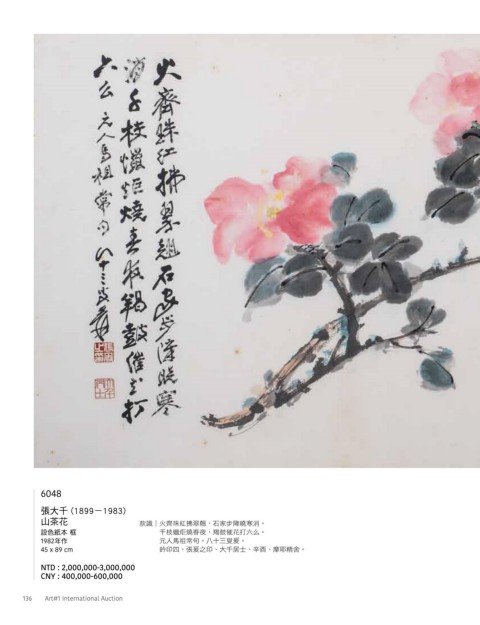 火齊珠紅拂翠翹石家步障曉寒
消千枝爥炬燒春夜羯鼓催花打
六么 元人馬祖常句 八十三叟爰
6048
張大千（1899－1983）
山茶花
設色紙本 框
1982年作
45 x 89 cm
款識｜火齊珠紅拂翠翹，石家步障曉寒消。
千枝蠟炬燒春夜，羯鼓催花打六么。
元人馬祖常句。八十三叟爰。
鈐印四：張爰之印、大千居士、辛酉、摩耶精舍。
NTD : 2,000,000-3,000,000
CNY : 400,000-600,000
136 Art#1 International Auction